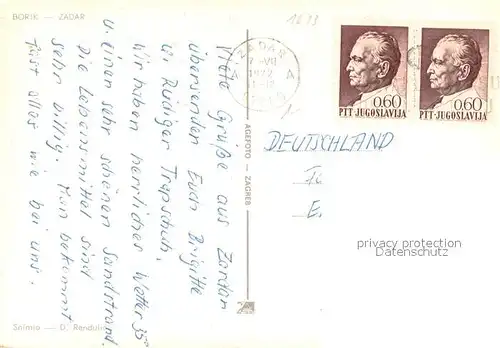 BORIK — ZADAR
1613
Viele Grüße aus Zardar
übersenden Euch Brigitte
u. Rüdiger Trapschuh.
Wir haben herrliches Wetter 35°
u. einen sehr schönen Sandstrand.
Die Lebensmittel sind
sehr billig. Man bekommt
fast alles wie bei uns.
Snimio — D. Rendulić
AGEFOTO — ZAGREB
ZADAR
7-VII
1972
A A
0.60 0.60
PTT JUGOSLAVIJA PTT-JUGOSLAVIJA
DEUTSCHLAND
E.
privacy protection
Datenschutz